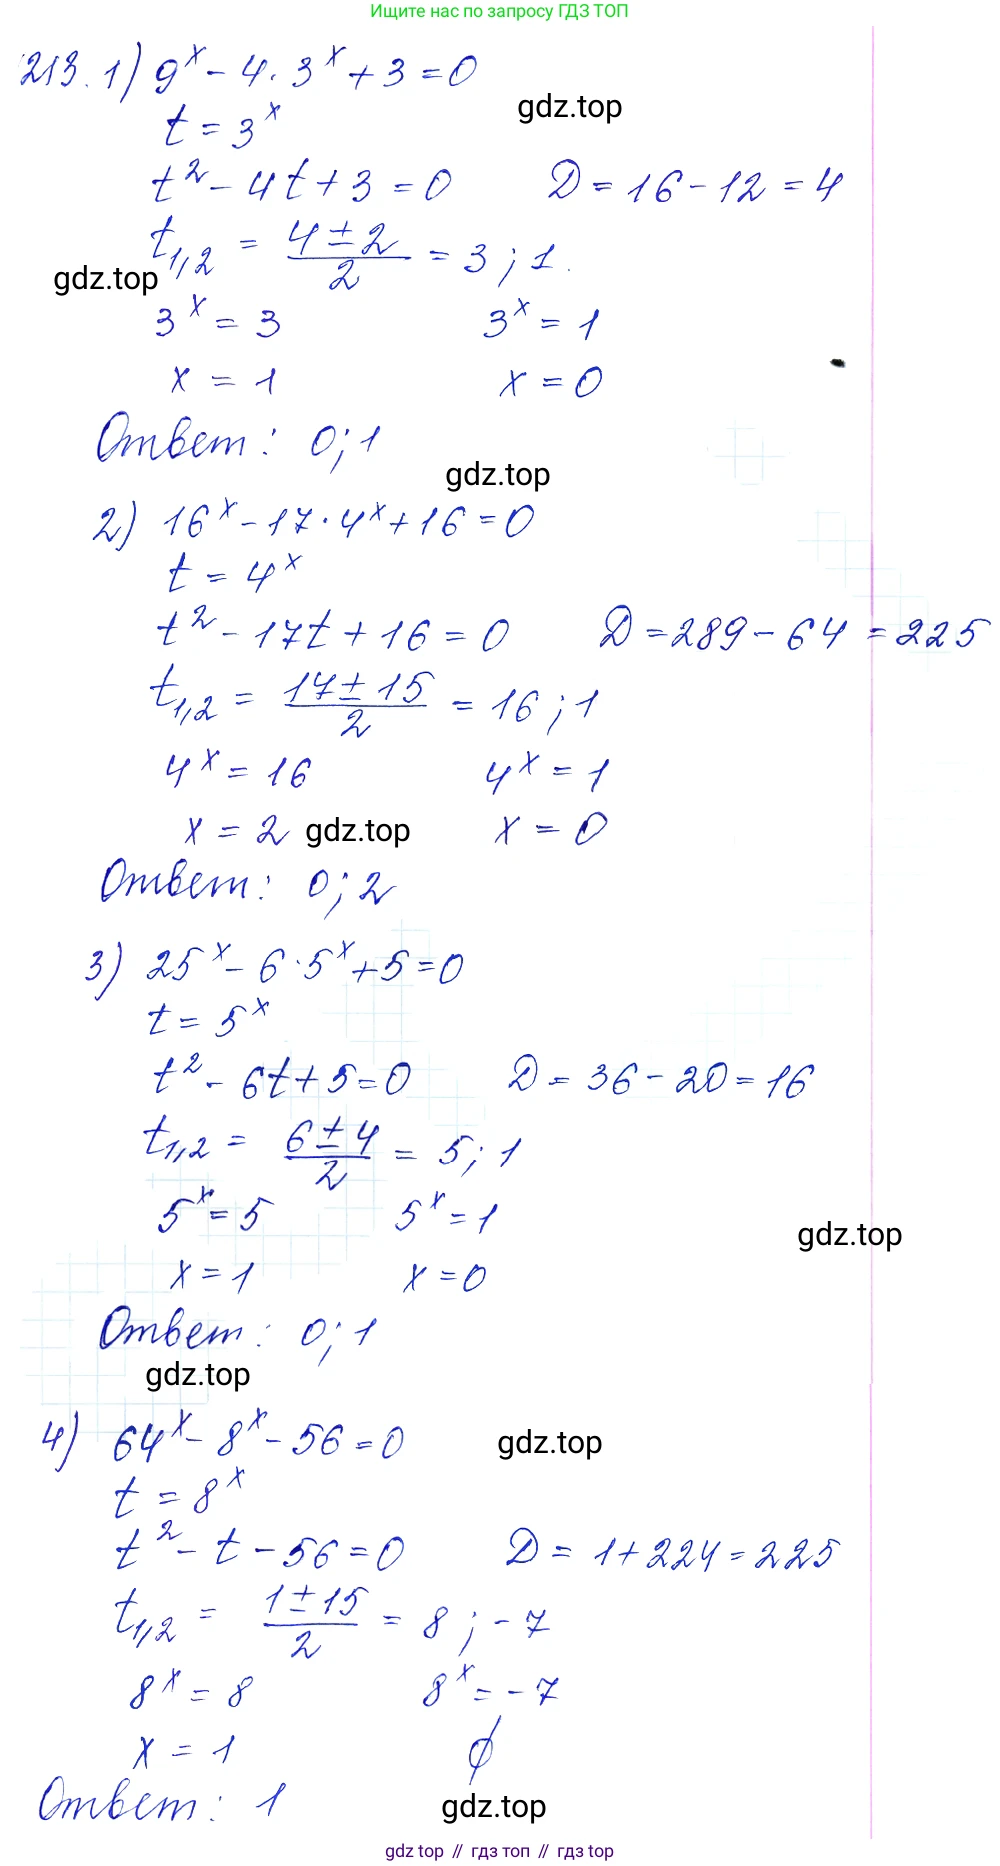 Ищите нас по запросу ГДЗ ТОП
213. 1) 9^x - 4 · 3^x + 3 = 0
gdz.top
t = 3^x
t^2 - 4t + 3 = 0 D = 16 - 12 = 4
t_{1,2} = \frac{4 ± 2}{2} = 3 ; 1.
gdz.top
3^x = 3 3^x = 1
x = 1 x = 0
Ответ: 0; 1
gdz.top
2) 16^x - 17 · 4^x + 16 = 0
t = 4^x
t^2 - 17t + 16 = 0 D = 289 - 64 = 225
t_{1,2} = \frac{17 ± 15}{2} = 16 ; 1
4^x = 16 4^x = 1
x = 2 gdz.top x = 0
Ответ: 0; 2
3) 25^x - 6 · 5^x + 5 = 0
t = 5^x
t^2 - 6t + 5 = 0 D = 36 - 20 = 16
t_{1,2} = \frac{6 ± 4}{2} = 5; 1
5^x = 5 5^x = 1
gdz.top
x = 1 x = 0
Ответ: 0; 1
gdz.top
4) 64^x - 8^x - 56 = 0
gdz.top
t = 8^x
t^2 - t - 56 = 0 D = 1 + 224 = 225
t_{1,2} = \frac{1 ± 15}{2} = 8 ; -7
8^x = 8 8^x = -7
x = 1 ∅
Ответ: 1
gdz.top
gdz top // гдз топ // гдз top